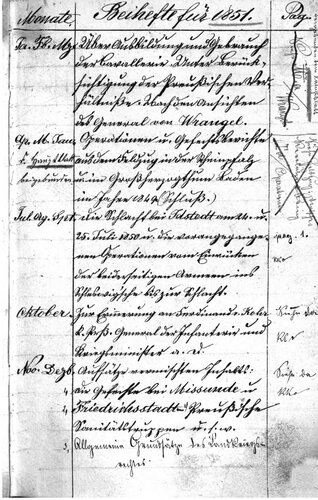 Monate Beihefte für 1851. Pag.
Ja. Fb. Mz. Über Ausbildung und Gebrauch
der Cavallerie. Unter Berück-
sichtigung der Preußischen Ver-
hältniße. Nach den Ansichten
des General von Wrangel.
Ap. M. Jun. Operationen u. Gefechtsberichte
aus dem Feldzug in der Rheinpfalz
u. im Großherzogthum Baden
im Jahre 1849 (Schluß.)
Jul. Ag. Spt. Die Schlacht bei Idstedt am 24. u.
25. Juli 1850 u. die vorangegange-
nen Operationen vom Einrücken
der beiderseitigen Armeen ins
Schleswigsche bis zur Schlacht.
Oktober. Zur Erinnerung an Ferdinand v. Rohr
k. Pr. General der Infanterie und
Kriegsminister a. D.
Nov. Dez. Aufsätze vermischten Inhalts:
die Gefechte bei Missunde u.
Friedrichsstadt Preußische
Sanitätstruppen u. s. w.
3, Allgemeine Grundsätze des Landkriegs-
rechtes.